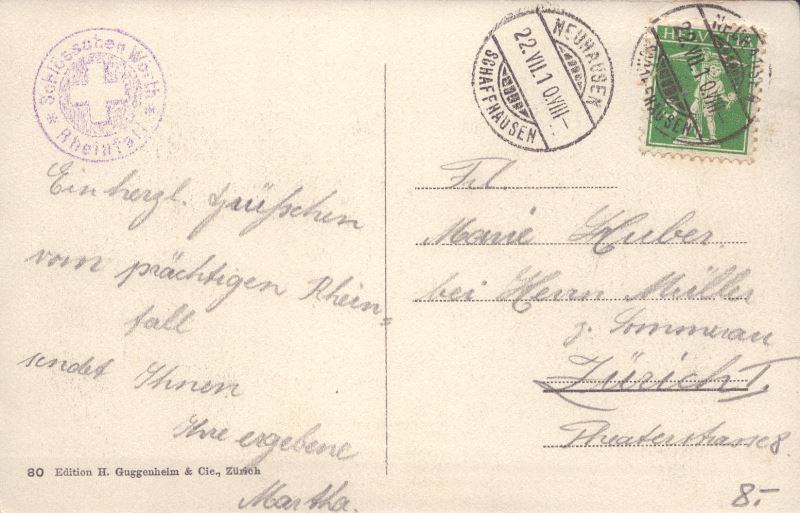 * Schlösschen Wörth *
Rheinfall
NEUHAUSEN
22.VII.10.VIII–
SCHAFFHAUSEN
HELVETIA
NEUHAUSEN
22.VII.10.VIII–
SCHAFFHAUSEN
Ein herzl. Grüsschen
vom prächtigen Rhein=
fall
sendet Ihnen
Ihre ergebene
Martha.
Frl.
Marie Huber
bei Herrn Müller
z. Sommerau
Zürich I,
Theaterstrasse 8.
80 Edition H. Guggenheim & Cie., Zürich
8.-